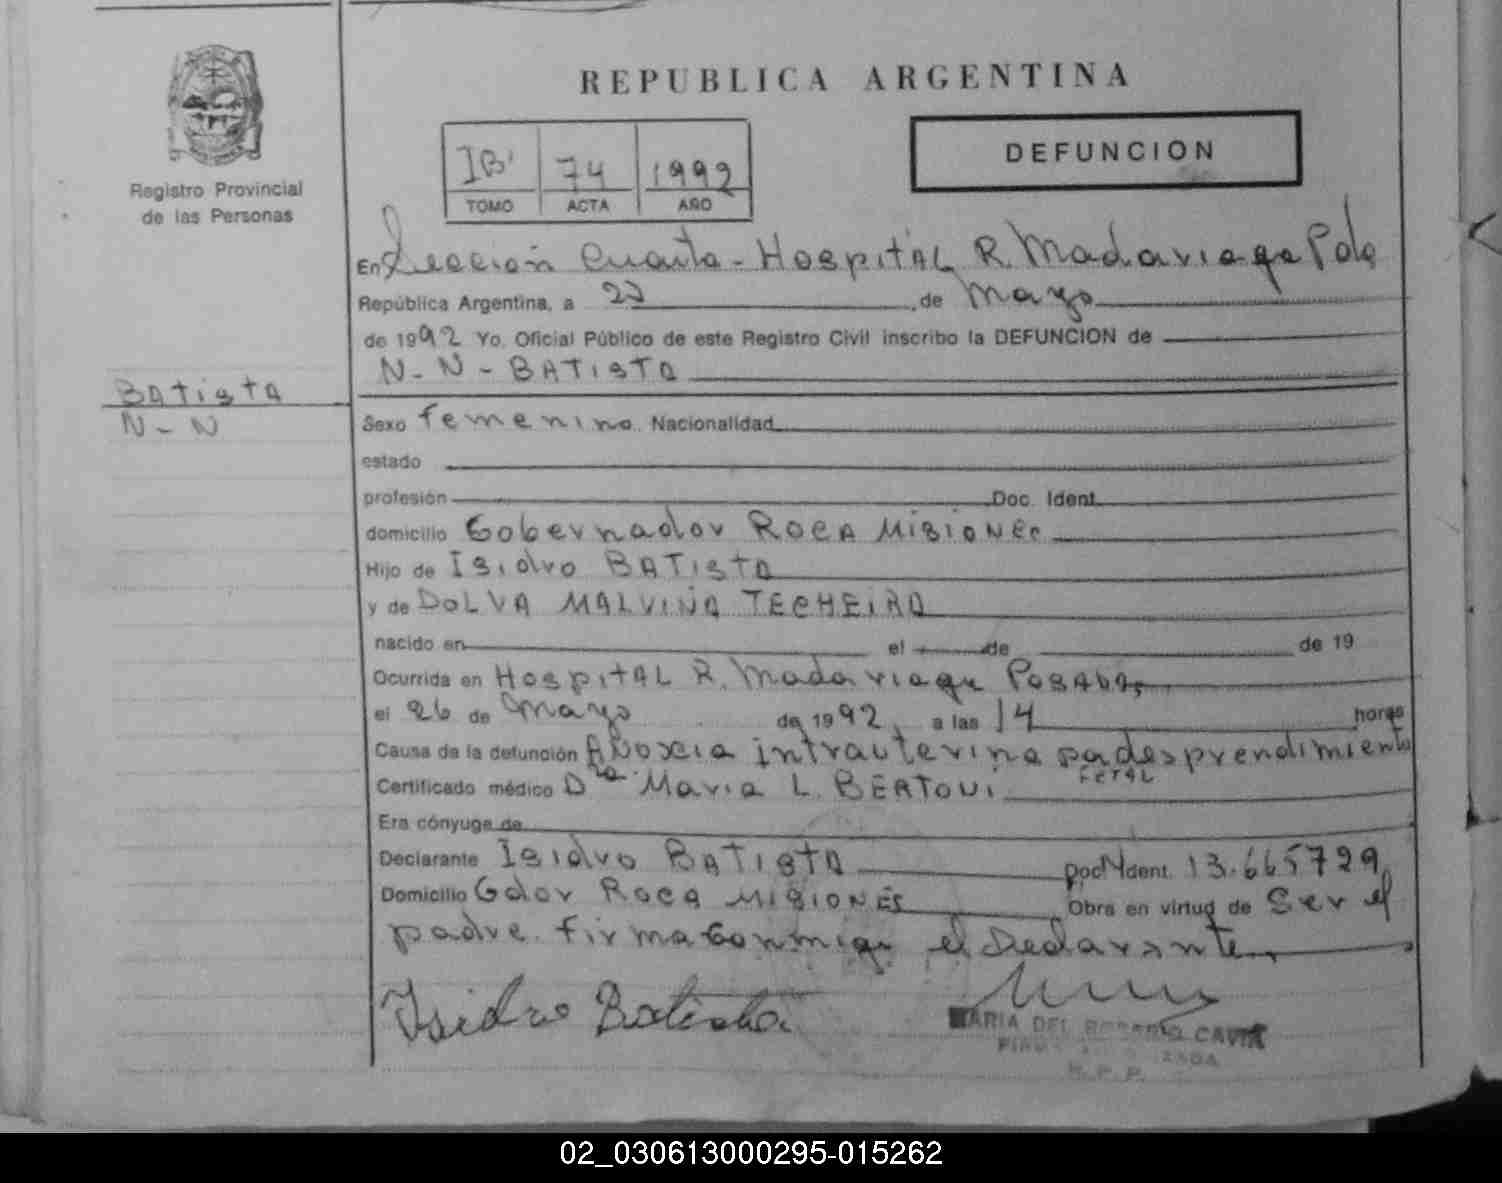 REPUBLICA ARGENTINA
Registro Provincial
de las Personas
IB' 74 1992
TOMO ACTA AÑO
DEFUNCION
En Sección Cuarta - HospitAL R. Madariaga Pdas
República Argentina, a 27 de Mayo
de 1992 Yo, Oficial Público de este Registro Civil inscribo la DEFUNCION de
N - N - BATISTA
BATista
N - N
Sexo femenino Nacionalidad
estado
profesión Doc. Ident.
domicilio Gobernador ROCA MISIONES
Hijo de Isidro BATISTA
y de DOLVA MALVINA TECHEIRA
nacido en el de de 19
Ocurrida en HospitAL R. Madariaga POSADAS
el 26 de Mayo de 1992 a las 14 horas
Causa de la defunción ANOXIA intrauterina desprendimiento
FETAL
Certificado médico Dra. Maria L. BERTONI
Era cónyuge de
Declarante Isidro BATISTA Doc. Ident. 13.665729
Domicilio Gdor ROCA MISIONES Obra en virtud de Ser el
padre. firma conmigo el Declarante
Isidro Batista
MARIA DEL ROSARIO CAVIA
R. P. P.
02_030613000295-015262